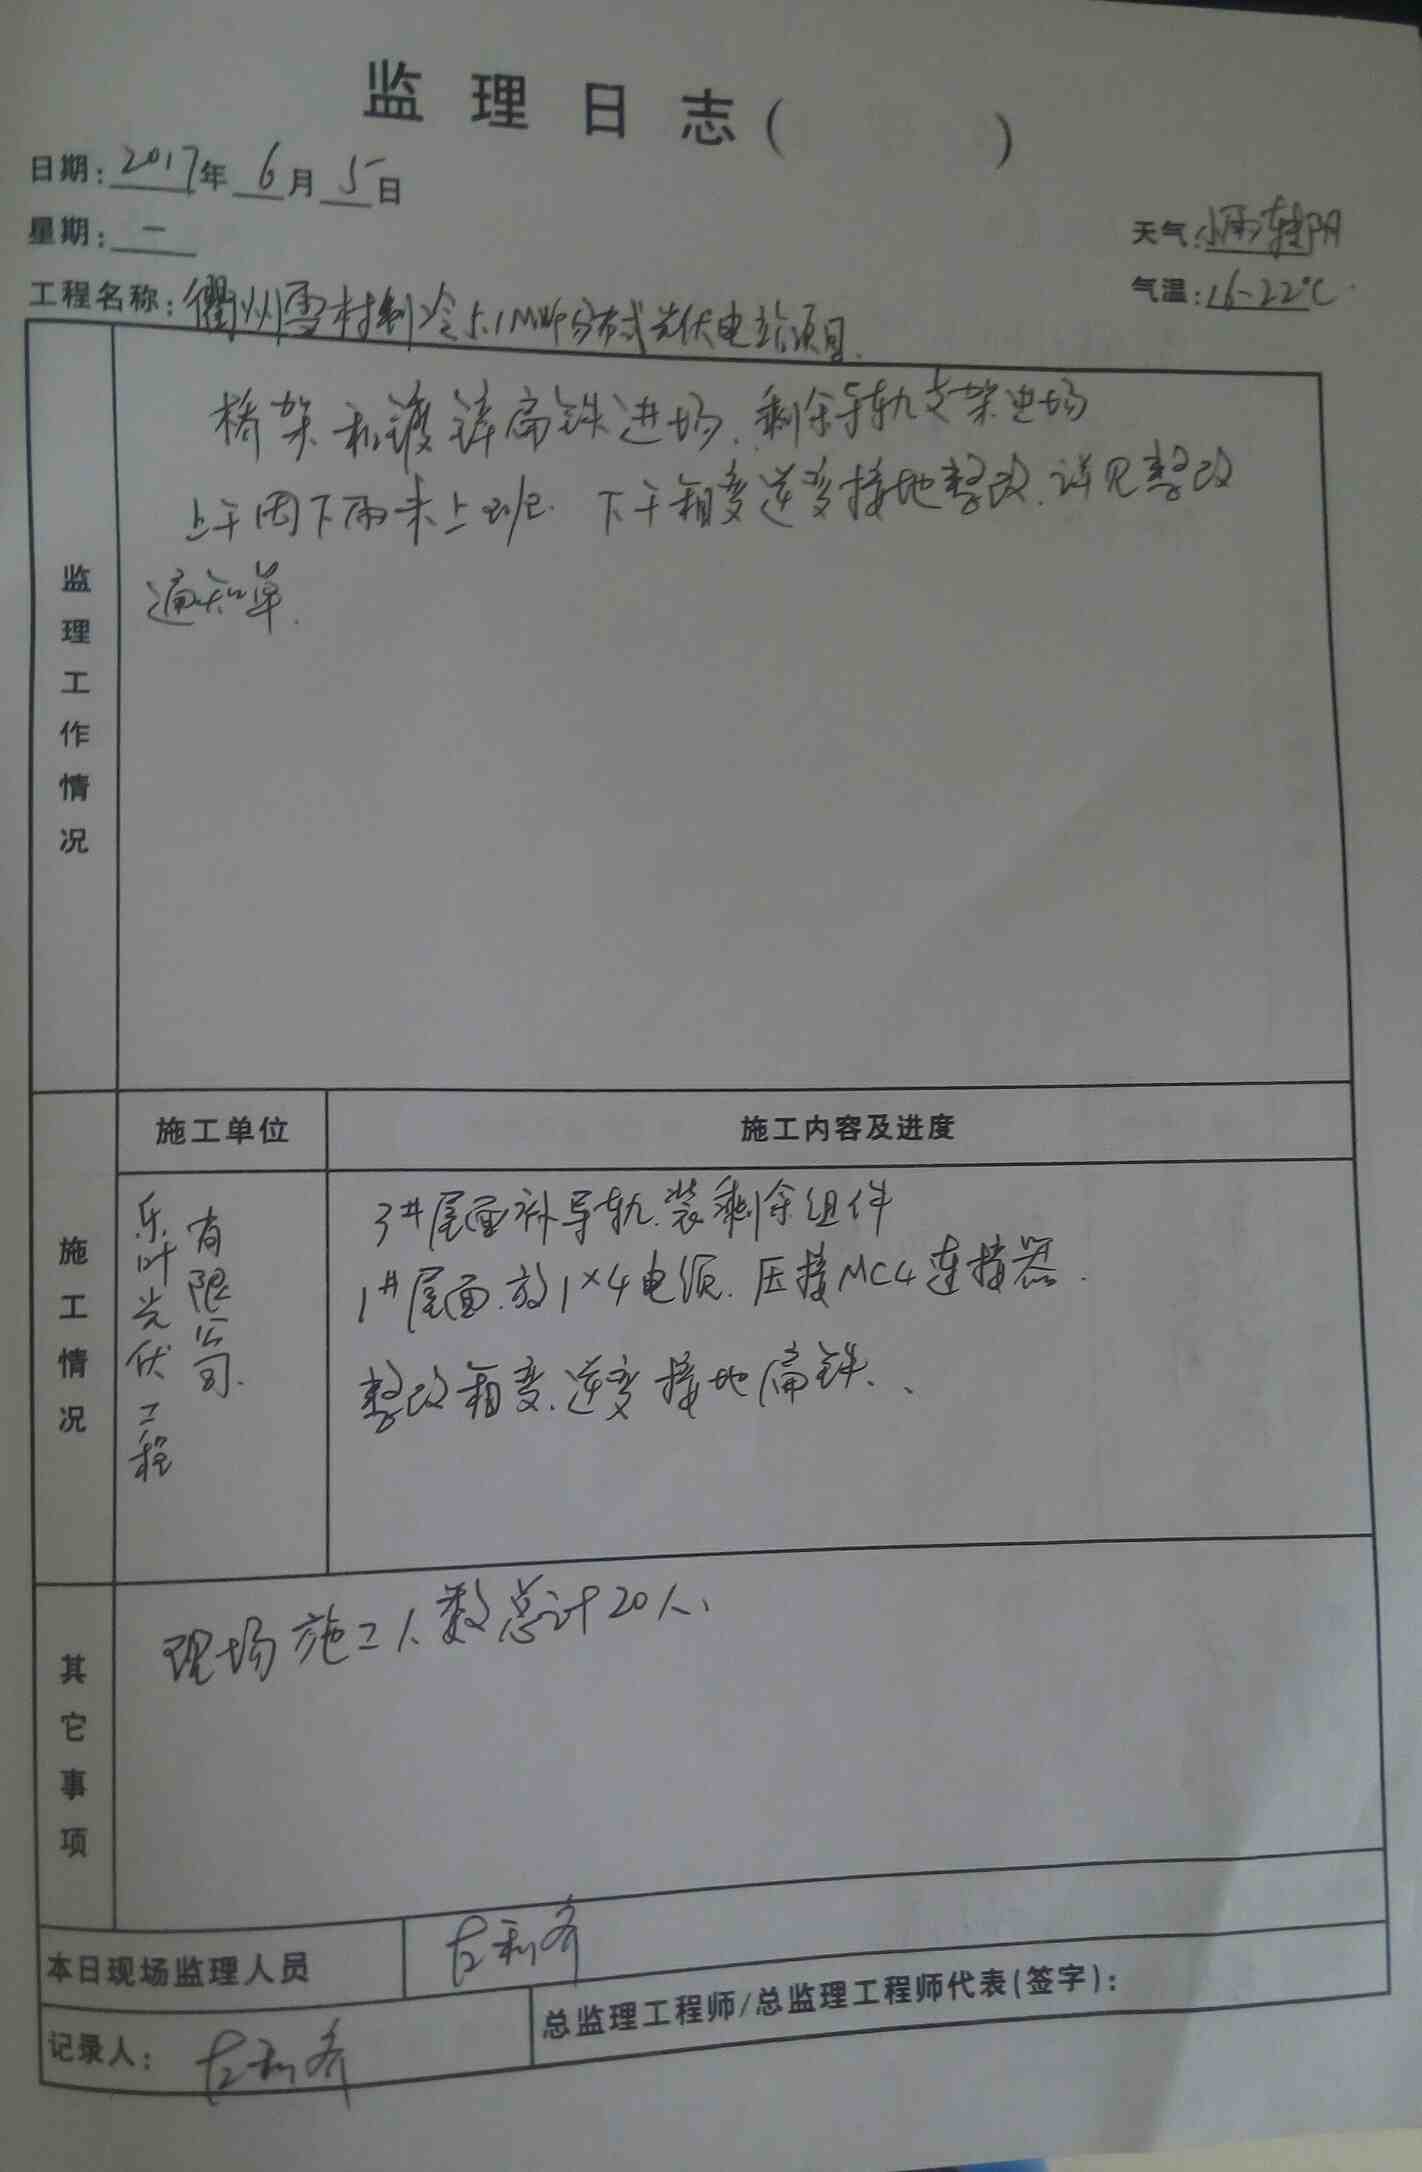 监理日志(    )
日期: 2017年 6月 5日
星期: 一
天气: 小雨转阴
气温: 16-22℃
工程名称: 衢州雪村制冷5.1MWP分布式光伏电站项目.
监理工作情况
桥架和镀锌扁铁进场.剩余导轨支架进场
上午因下雨未上班. 下午箱变逆变接地整改.详见整改
通知单.
施工情况
施工单位
施工内容及进度
乐叶光伏工程
有限公司.
3#屋面补导轨.装剩余组件
1#屋面.放1×4电源.压接MC4连接器.
整改箱变.逆变接地扁铁.
其它事项
现场施工人数总计20人、
本日现场监理人员
记录人:
总监理工程师/总监理工程师代表(签字):